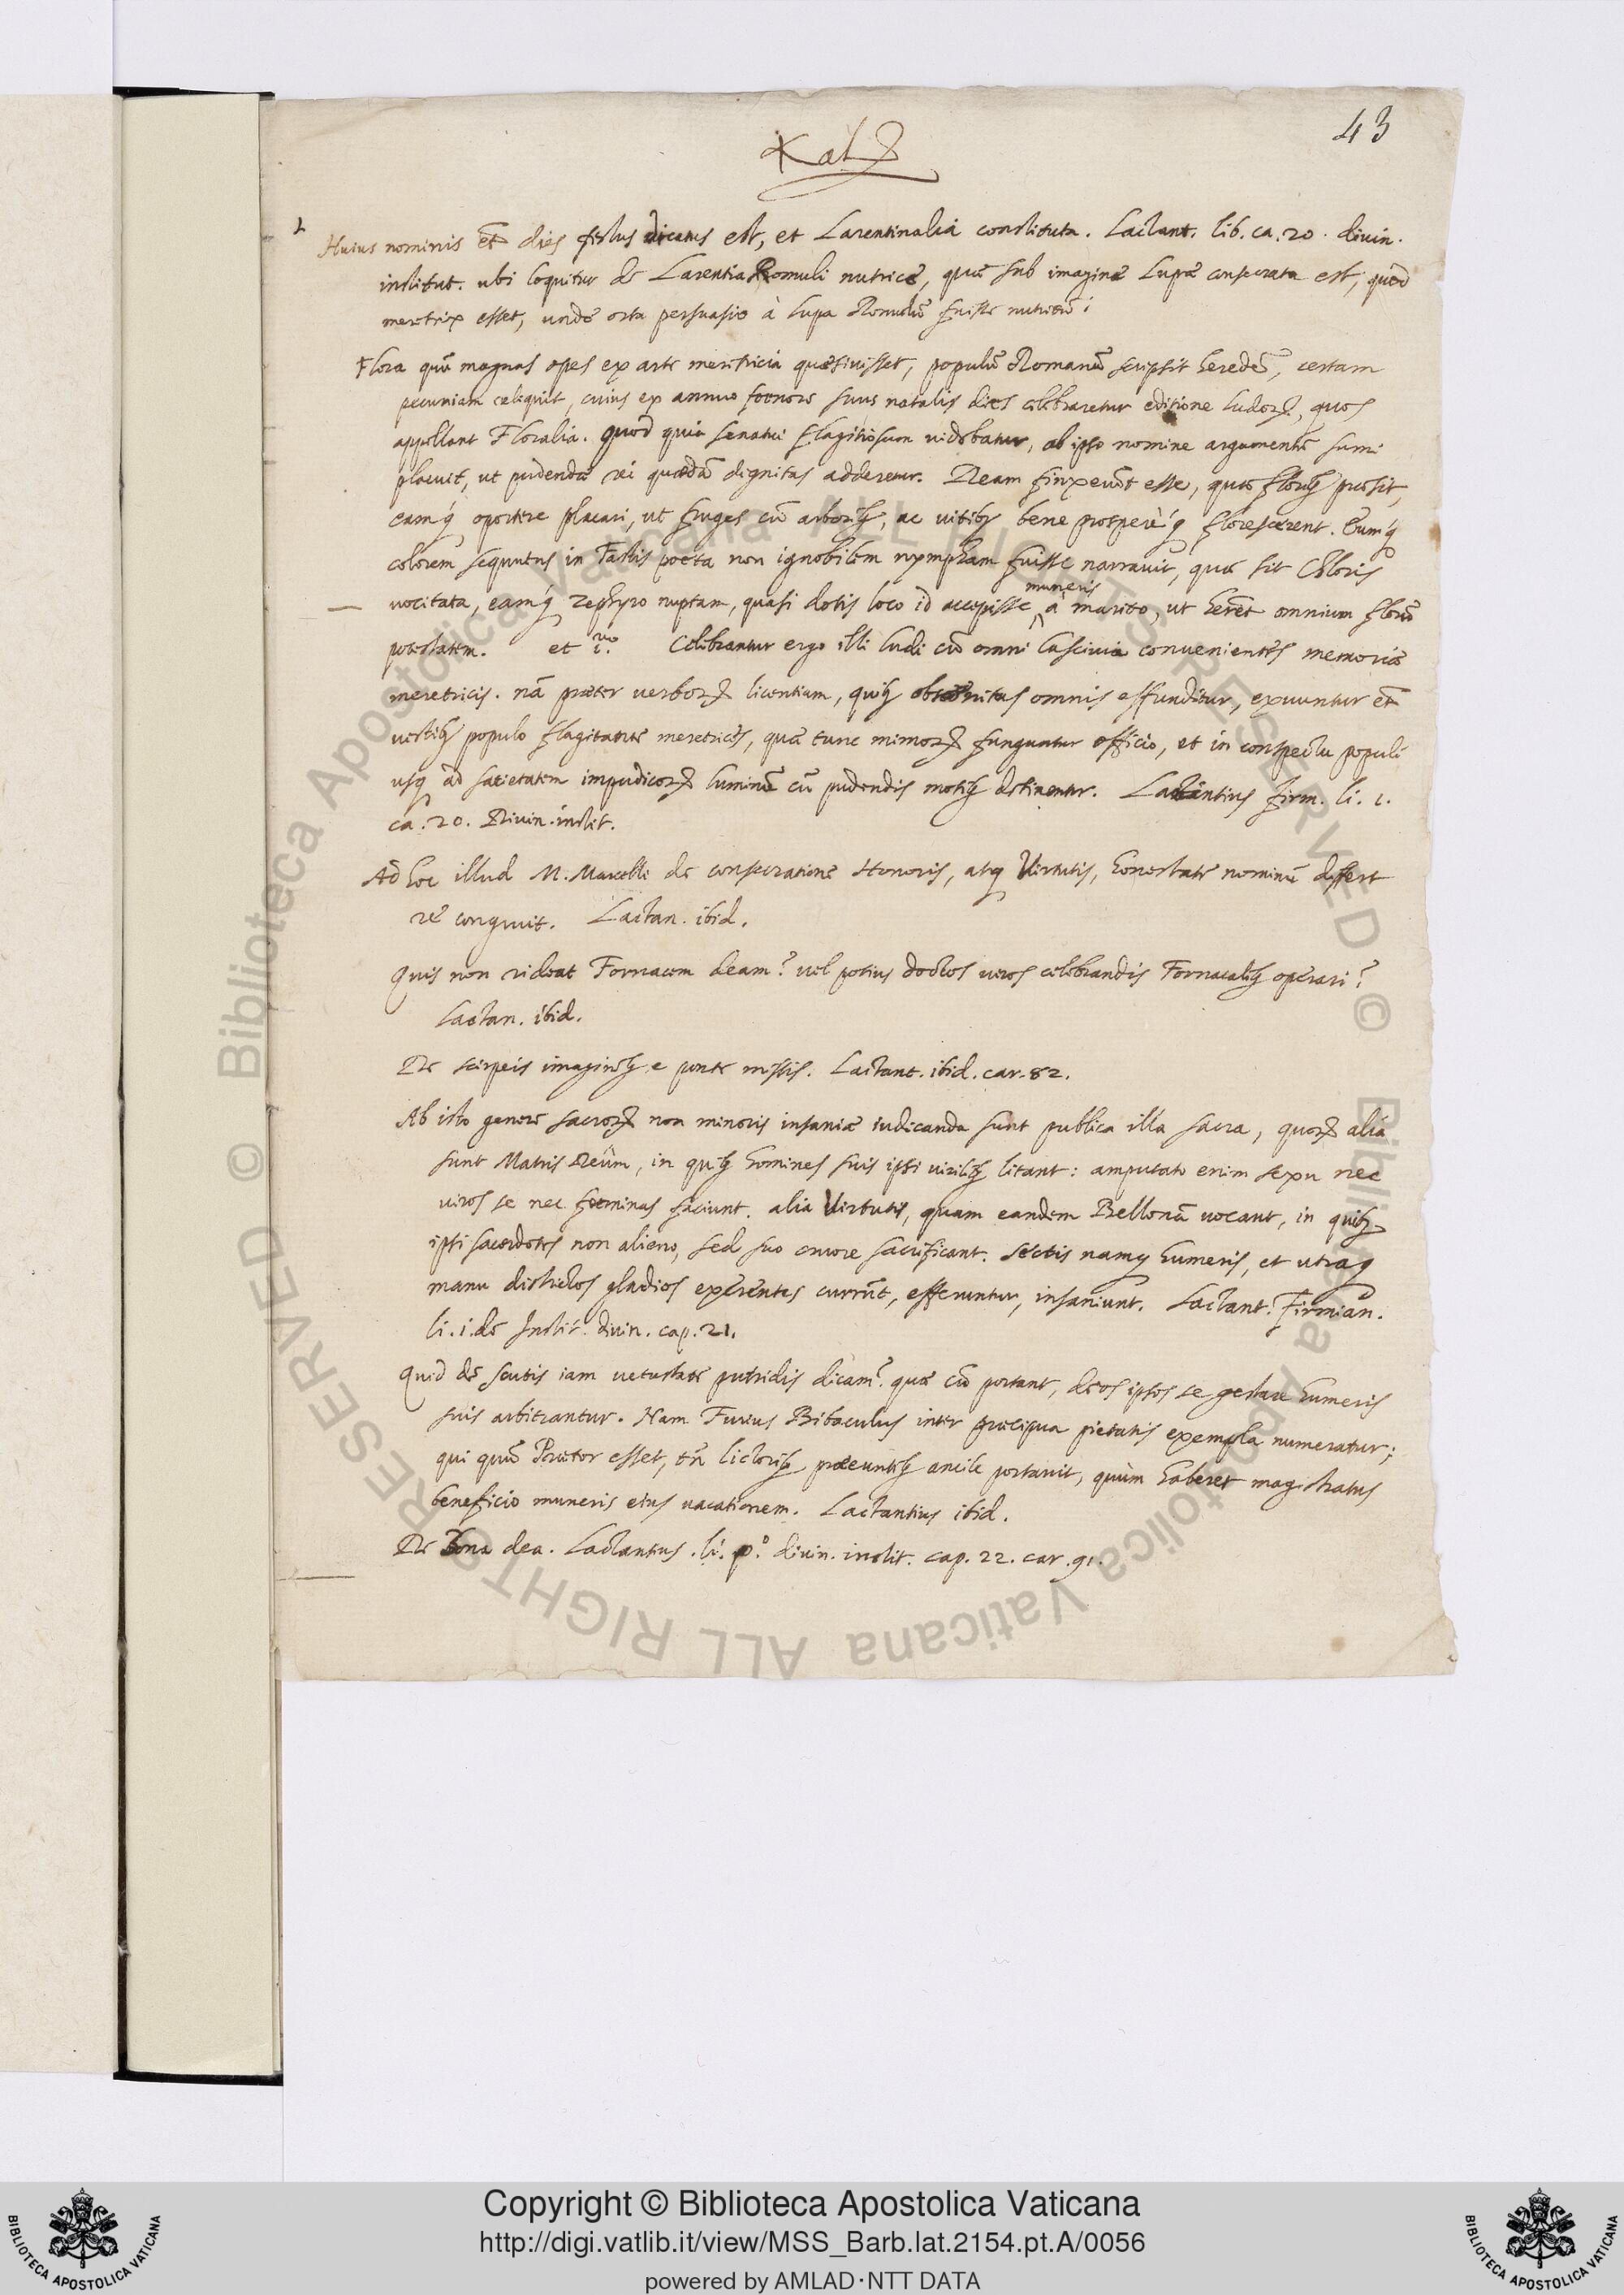 43
Kalꝝ
1
Huius nominis et̄ dies festus dicatus est, et Larentinalia constituta. Lactant. lib. ca. 20. diuin.
institut. ubi loquitur de Larentia Romuli nutrice, quę sub imagine Lupæ consecrata est, quod
meretrix esset, unde orta persuasio à lupa Romulū fuisse nutritū;
Flora quū magnas opes ex arte meretricia quæsiuisset, populū Romanū scripsit heredē, certam
pecuniam reliquit, cuius ex annuo foenore suus natalis dies celebraretur editione ludoꝝ, quos
appellant Floralia. quod quia senatui flagitiosum uidebatur, ab ipso nomine argumentū sumi
placuit, ut pudendæ rei quædā dignitas adderetur. Deam finxerūt esse, quæ floribꝫ præsit,
eamq́ꝫ oportere placari, ut fruges cū arboribꝫ, ac uitibꝫ bene prospereq́ꝫ florescerent. Eumq́ꝫ
colorem sequutus in Fastis poëta non ignobilem nympham fuisse narrauit, quæ sit Chloris
muneris
uocitata, eamq́ꝫ Zephyro nuptam, quasi dotis loco id accepisse ‸ à marito, ut heret omnium florū
potestatem. et i.º Celebrantur ergo illi ludi cū omni lasciuia conuenientes memoriæ
meretricis. nā præter uerboꝝ licentiam, quibꝫ obscœnitas omnis effunditur, exuuntur et̄
uestibꝫ populo flagitante meretrices, quæ tunc mimoꝝ funguntur officio, et in conspectu populi
usqꝫ ad satietatem impudicoꝝ luminū cū pudendis motibꝫ detinentur. Lactantius firm. li. 1.
ca. 20. Diuin. instit.
Ad hoc illud M. Marcelli de consecratione Honoris, atqꝫ Virtutis, honestate nominū differt
re congruit. Lactan. ibid.
Quis non rideat Fornacem deam? uel potius doctos uiros celebrandis Fornacalibꝫ operari?
Lactan. ibid.
De scirpeis imaginibꝫ e ponte missis. Lactant. ibid. car. 82.
Ab isto genere sacroꝝ non minoris insaniæ iudicanda sunt publica illa sacra, quoꝝ alia
sunt Matris Deûm, in quibꝫ homines suis ipsi uirilibꝫ litant: amputato enim sexu nec
uiros se nec foeminas faciunt. alia Virtutis, quam eandem Bellonā uocant, in quibꝫ
ipsi sacerdotes non alieno, sed suo cruore sacrificant. sectis namqꝫ humeris, et utraqꝫ
manu districtos gladios exerentes currūt, efferuntur, insaniunt. Lactant. Firmian.
li. i. de Instit. diuin. cap. 21.
Quid de scutis iam uetustate putridis dicam? quæ cū portant, deos ipsos se gestare humeris
suis arbitrantur. Nam Furius Bibaculus inter præcipua pietatis exempla numeratur;
qui quū Prætor esset, tn̄ lictoribꝫ præeuntibꝫ ancile portauit, quùm haberet magistratus
beneficio muneris eius uacationem. Lactantius ibid.
De Bona dea. Lactantius. li. p.º diuin. instit. cap. 22. car. 91.
© Biblioteca Apostolica Vaticana ALL RIGHTS RESERVED © Biblioteca Apostolica Vaticana ALL RIGHTS RESERVED
Copyright © Biblioteca Apostolica Vaticana
http://digi.vatlib.it/view/MSS_Barb.lat.2154.pt.A/0056
powered by AMLAD·NTT DATA
BIBLIOTECA APOSTOLICA VATICANA
BIBLIOTECA APOSTOLICA VATICANA